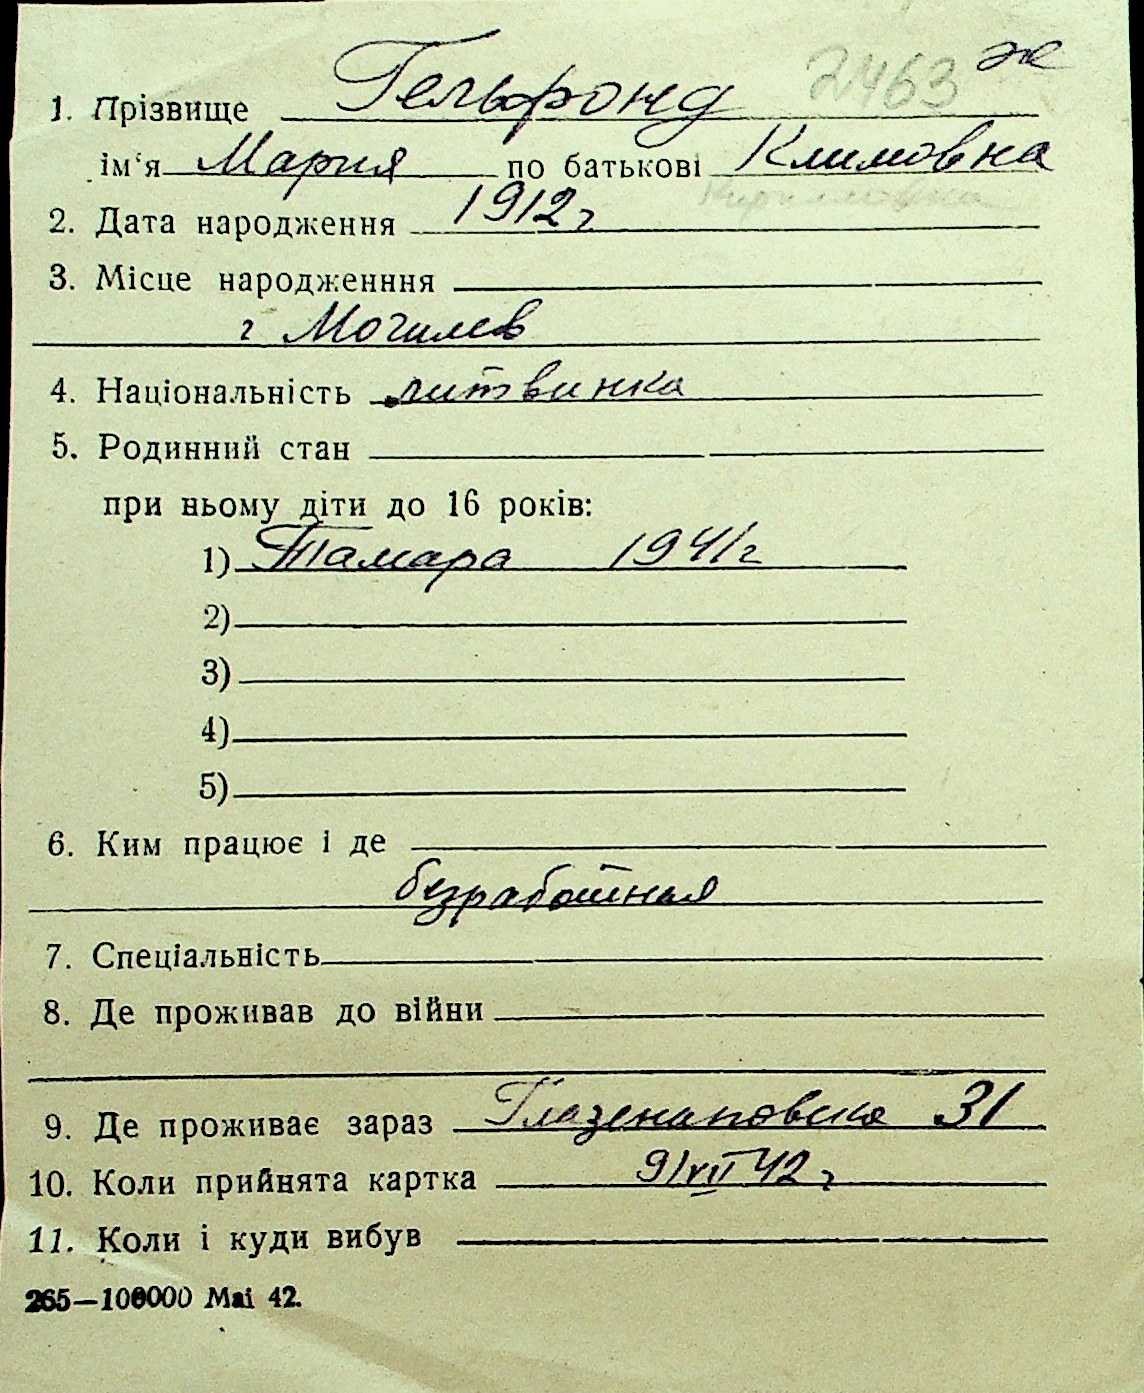 2463 ж
1. Прізвище Гельфонд
ім‘я Мария по батькові Климовна
Кирилловна
2. Дата народження 1912 г
3. Місце народженння
г Могилев
4. Національність литвинка
5. Родинний стан
при ньому діти до 16 років:
1) Тамара 1941 г
2)
3)
4)
5)
6. Ким працює і де
безработная
7. Спеціальність
8. Де проживав до війни
9. Де проживає зараз Глазенаповска 31
10. Коли прийнята картка 9/VII 42 г
11. Коли і куди вибув
265—100000 Mai 42.